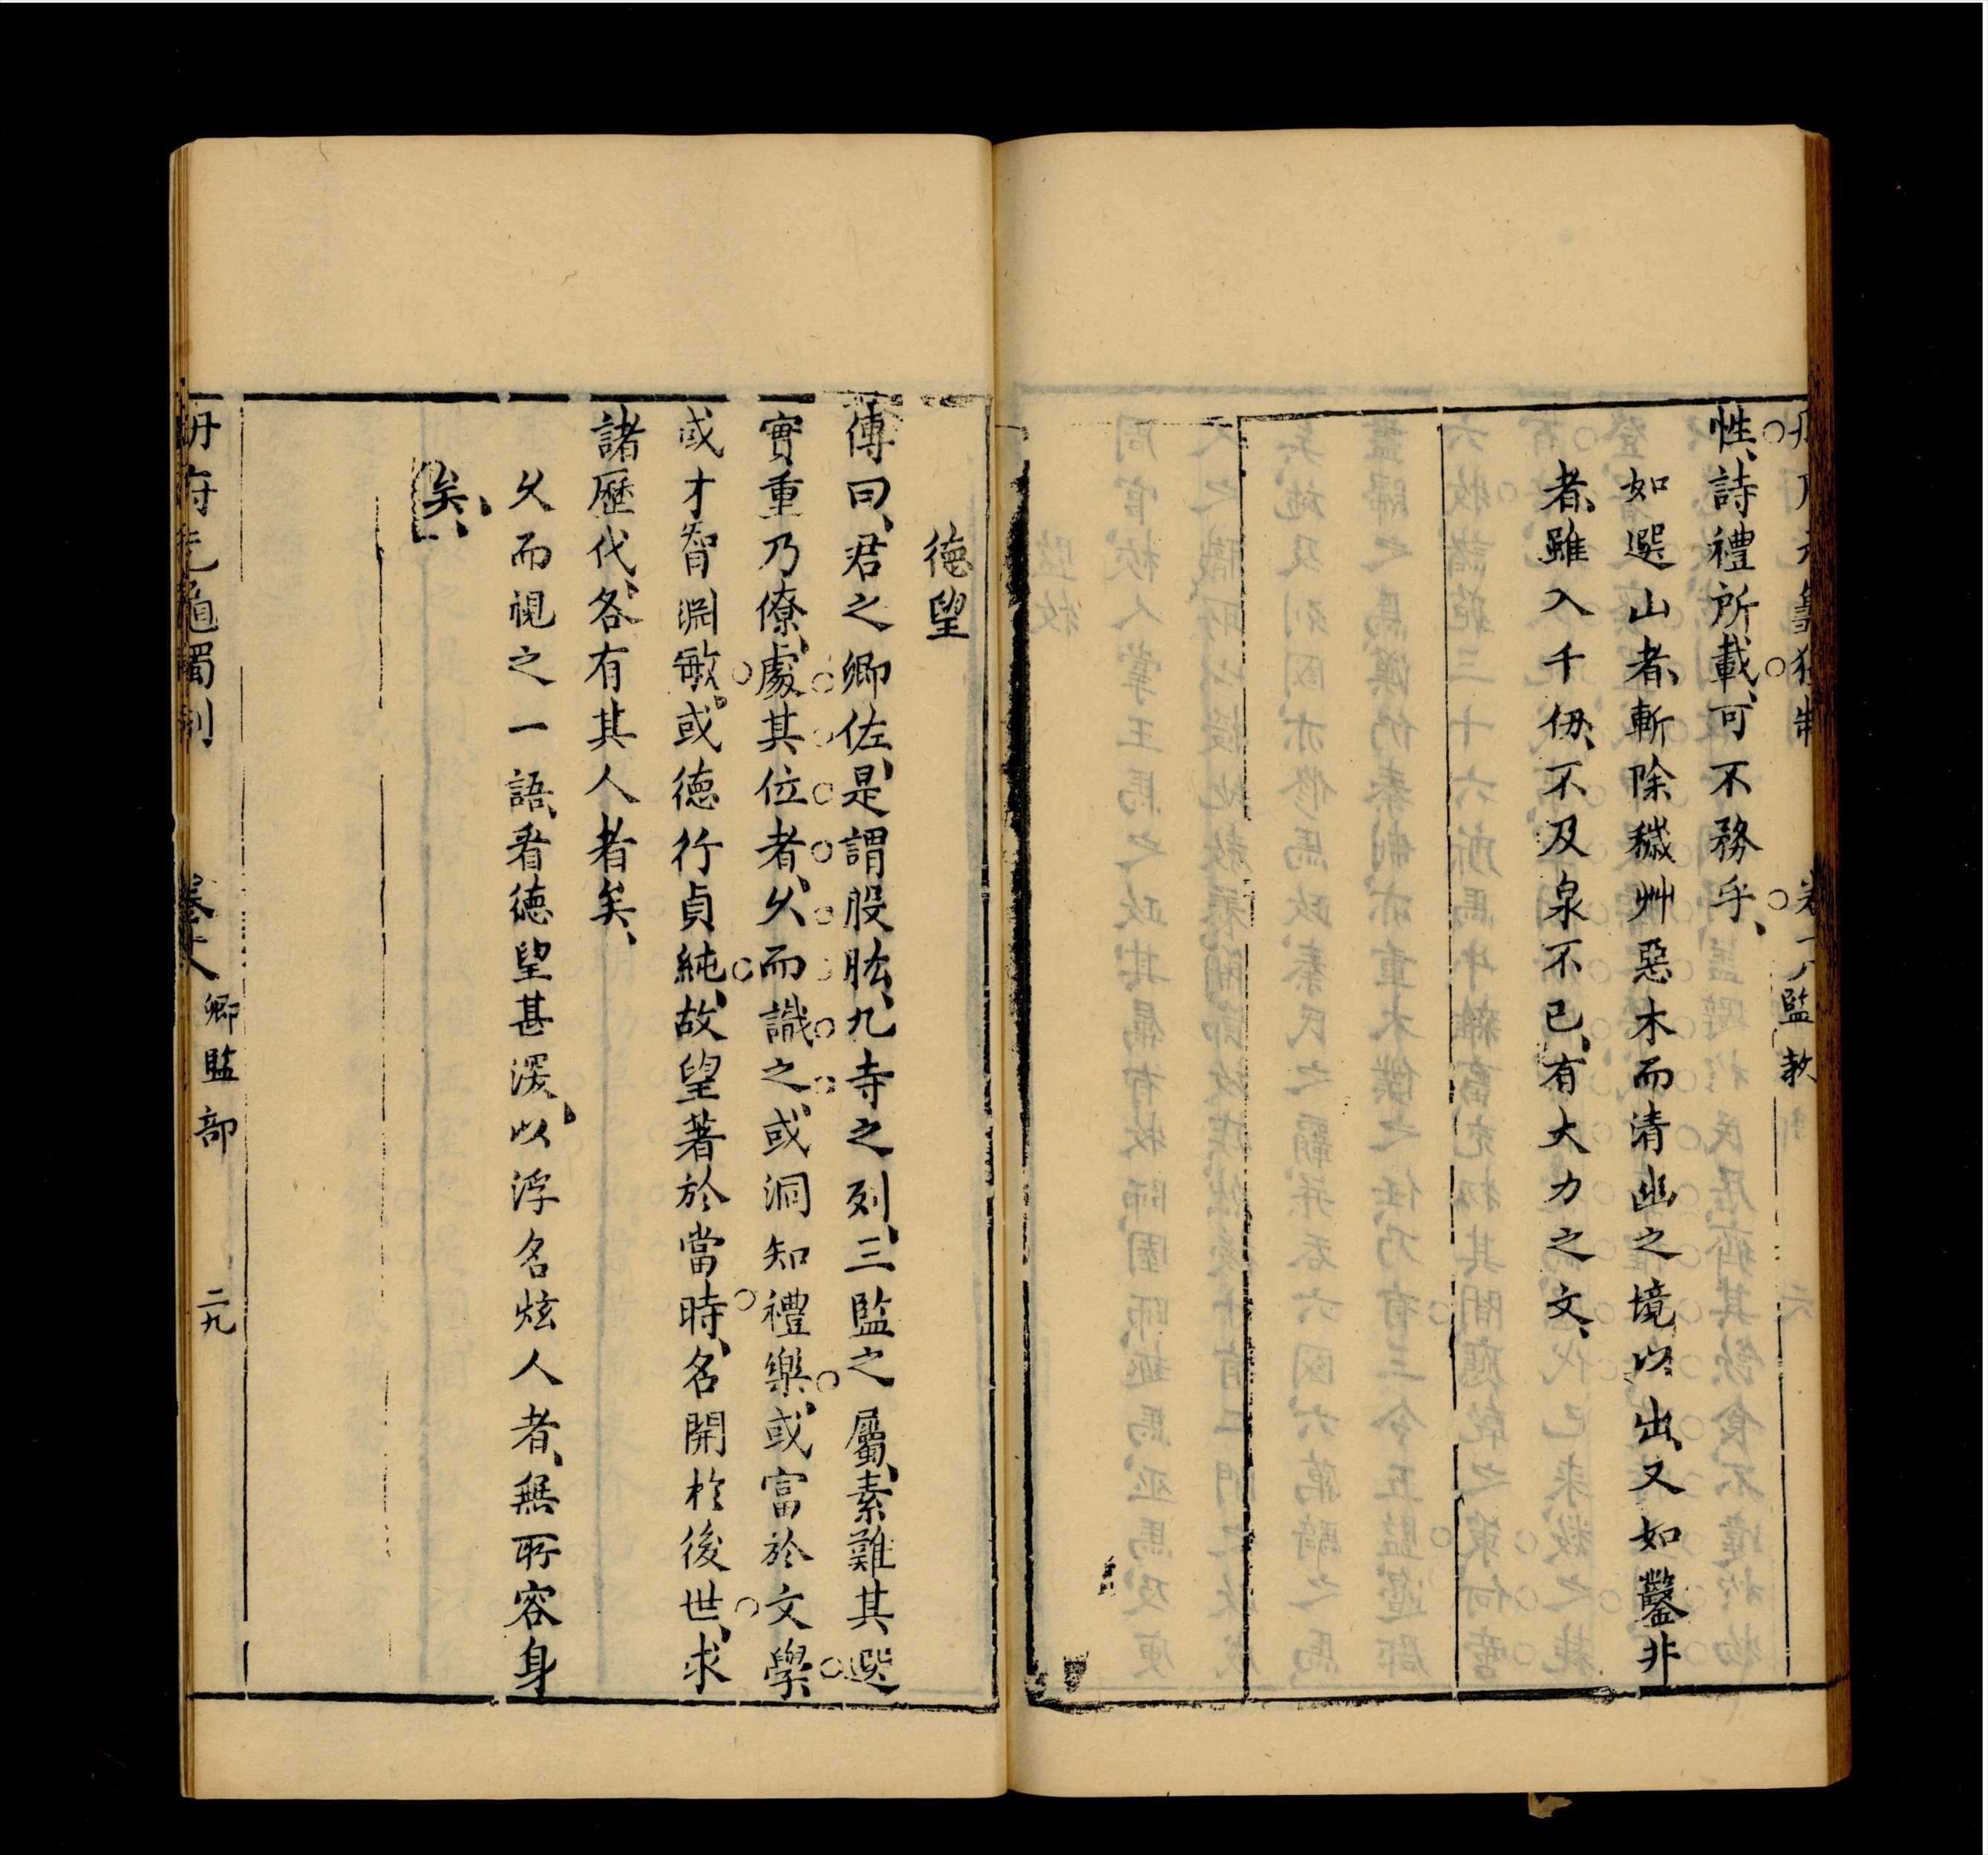 性、詩禮所載、可不務乎、
如選山者、斬除穢艸惡木而清幽之境以出、又如鑿井
者、雖入千仞、不及泉不已、有大力之文、
德望
傳曰、君之卿佐、是謂股肱、九寺之列、三監之屬、素難其選
實重乃僚、處其位者、乆而識之、或洞知禮樂、或富於文學
或才智淵敏、或德行貞純、故望著於當時、名開於後世、求
諸歷代、各有其人者矣、
乆而視之一語、看德望甚深、以浮名炫人者、無所容身
矣、
卿監部
二九